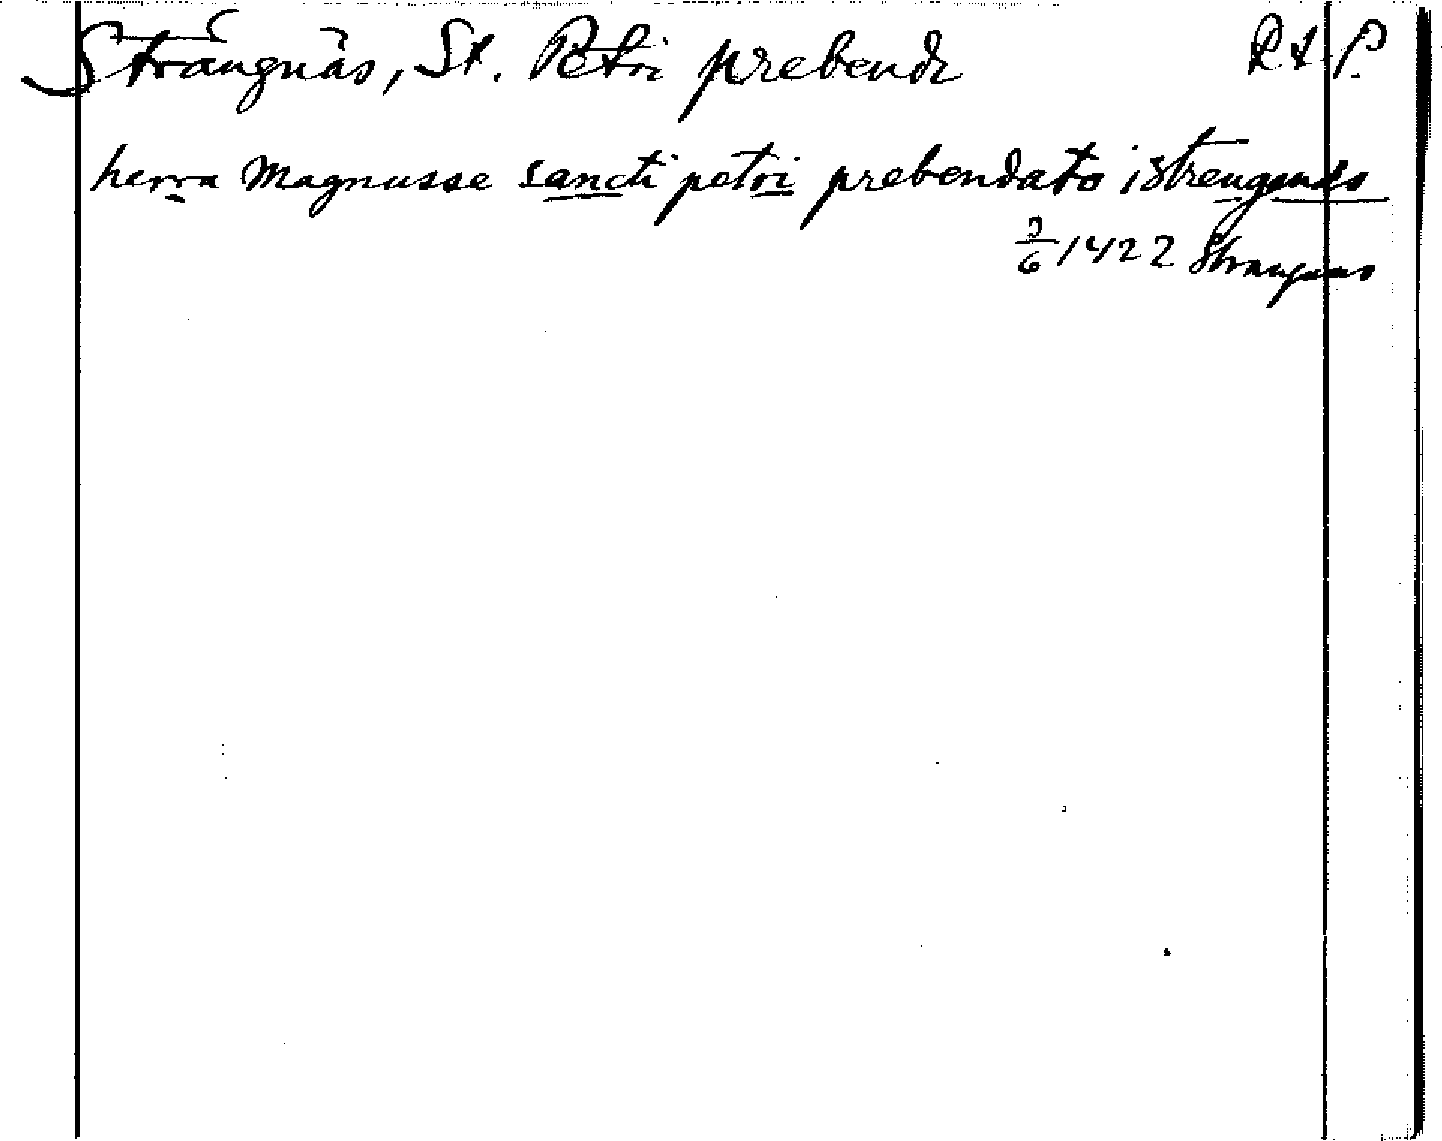 Strängnäs, St. Petri prebende R A P.
herra Magnusse sancti petri prebendato istrengenæs
3/6 1422 Strängnäs